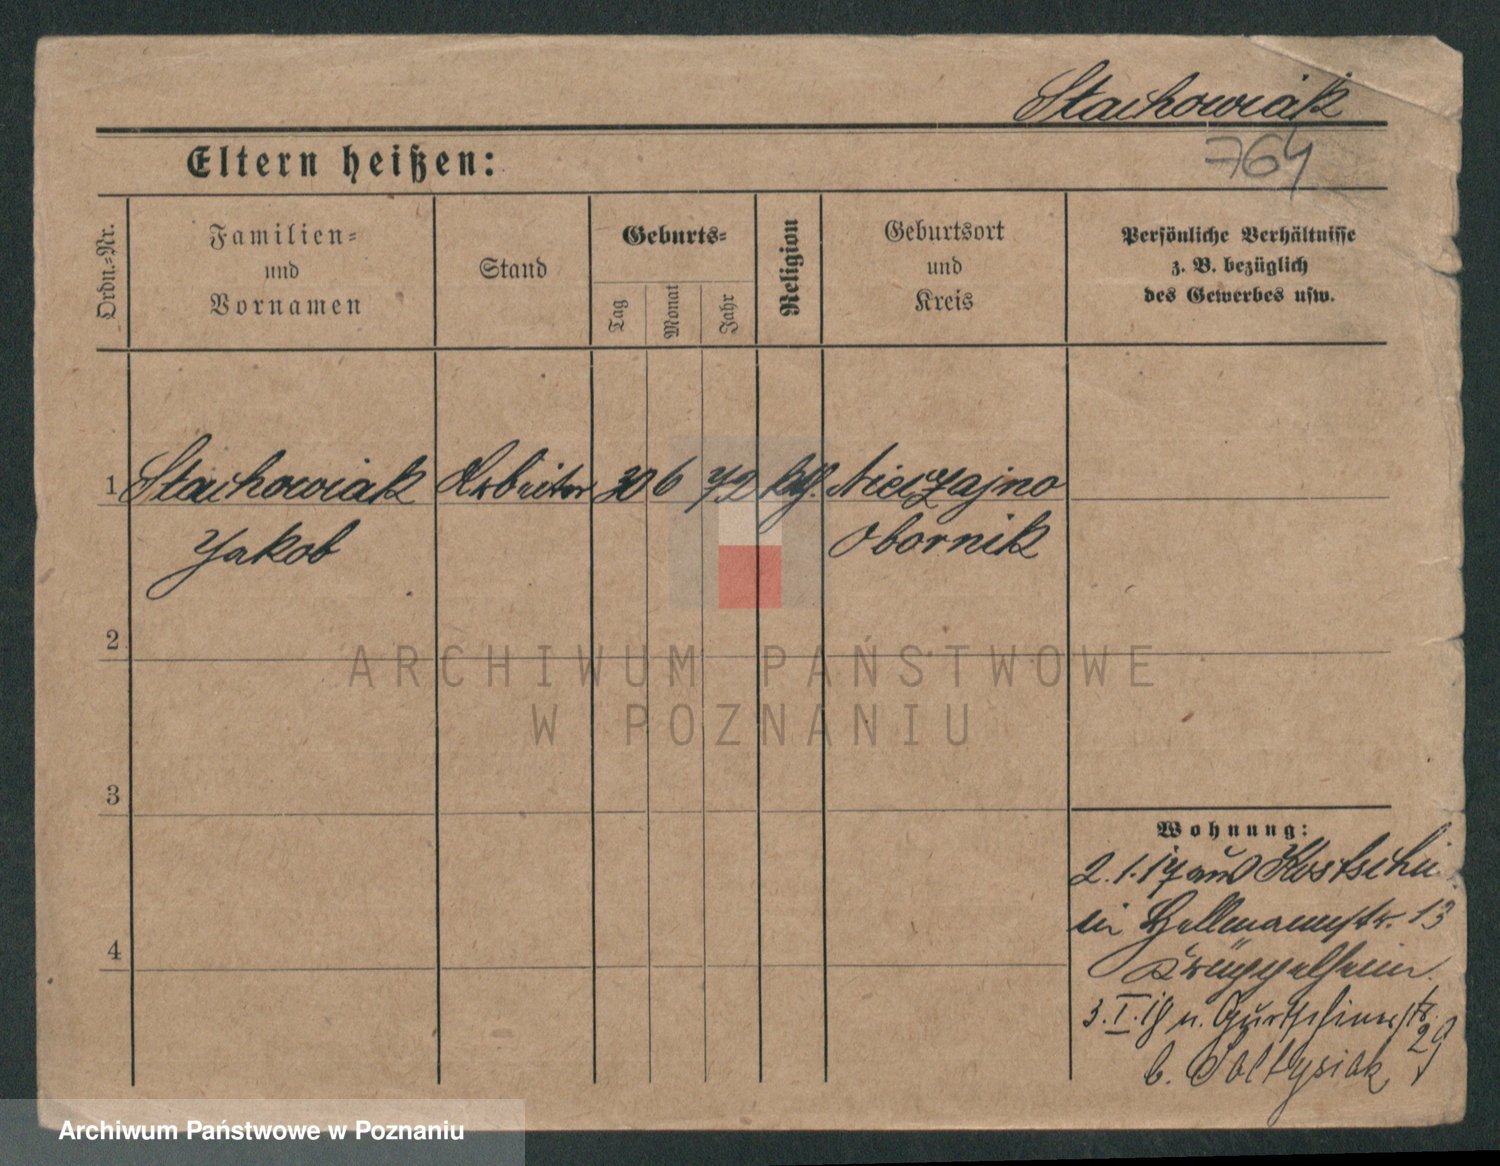 Stachowiak
764
Eltern heißen:
Ordn.-Nr.
Familien-
und
Vornamen
Stand
Geburts-
Tag
Monat
Jahr
Religion
Geburtsort
und
Kreis
Persönliche Verhältnisse
z. B. bezüglich
des Gewerbes usw.
1 Stachowiak Arbeiter 30 6 72 kth. Nieczajno
Jakob Obornik
2
3
4
ARCHIWUM PAŃSTWOWE
W POZNANIU
Wohnung:
2.1.17 aus Kostschin
in Hellmannstr. 13
Krüppelheim.
3.I.18 n. Gurtschinerstr.
29
b. Sołtysiak
Archiwum Państwowe w Poznaniu